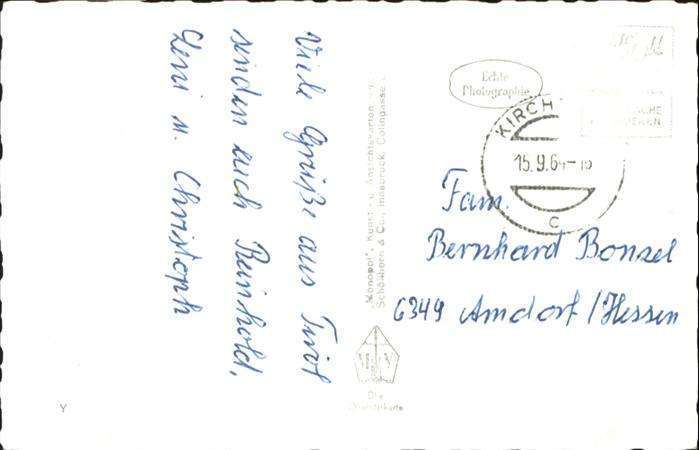 Viele Grüße aus Tirol
senden euch Reinhold,
Leni u. Christoph
"Monopol", Kunst- u. Ansichtskarten
Schöllhorn & Co., Innsbruck, Colingasse
Echte
Photographie
KIRCH
15.9.64-
C
Fam.
Bernhard Bonzel
6349 Amdorf/Hessen
Die
Y